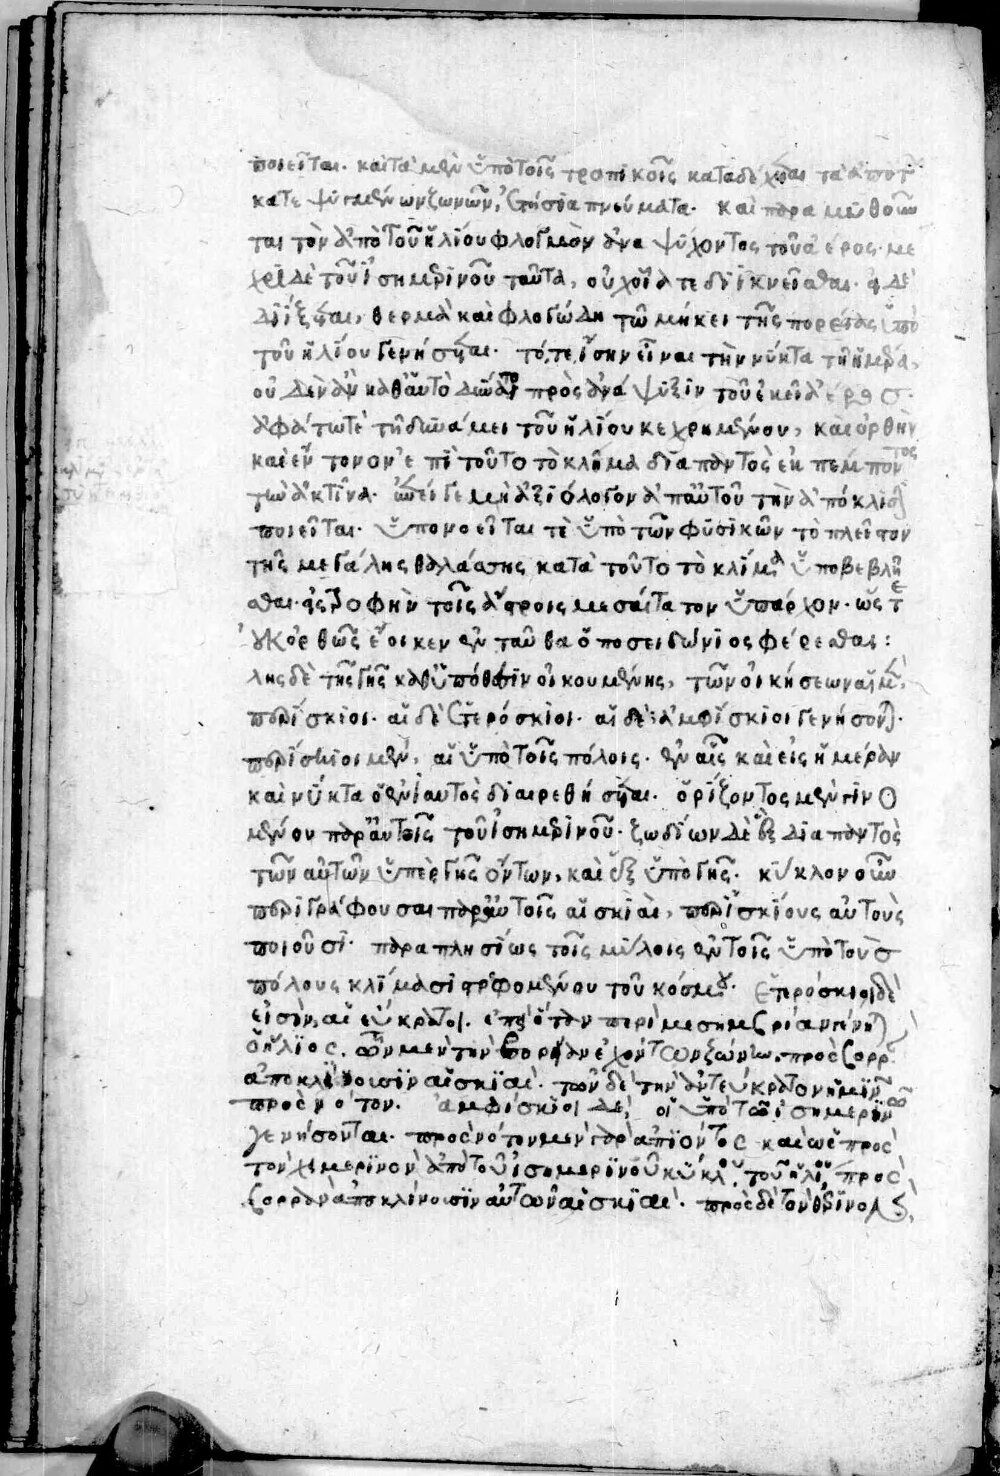 ποιεῖται. καὶ τὰ μὲν ὑπὸ τοῖς τροπικοῖς καταδέχεται τὰ ἀπὸ τ
κατεψυγμένων ζωνῶν, ἐτήσια πνεύματα. καὶ παραμυθοῦν
ται τὸν ἀπὸ τοῦ ἡλίου φλογμὸν ἀναψύχοντος τοῦ ἀέρος. με
χρὶ δὲ τοῦ ἰσημερινοῦ ταῦτα, οὐχ οἷά τε διϊκνεῖσθαι. ἢ δὲ
διΐξεται, θερμὰ καὶ φλογώδη τῷ μήκει τῆς πορείας ὑπὸ
τοῦ ἡλίου γενήσεται. τό, τε, ἴσην εἶναι τὴν νύκτα τῇ ἡμέρα,
οὐδὲν ἂν καθ' αὑτὸ δύναιτο πρὸς ἀνάψυξιν τοῦ ἐκεῖ ἀέρος.
ἀφάτω τὲ τῇ δυνάμει τοῦ ἡλίου κεχρημένου, καὶ ὀρθὴν
καὶ εὔτονον ἐπὶ τοῦτο τὸ κλῆμα διαπαντὸς ἐκπέμποντος
τὴν ἀκτῖνα. ἐπεί γε μὴ ἀξιόλογον ἀπ' αὐτοῦ τὴν ἀπόκλισιν
ποιεῖται. ὑπονοεῖται τὲ ὑπὸ τῶν φυσικῶν τὸ πλεῖστον
τῆς μεγάλης θαλάσσης κατὰ τοῦτο τὸ κλίμα ὑποβεβλῆ
σθαι. εἰς τροφὴν τοῖς ἄστροις μεσαίτατον ὑπάρχον. ὥστε
οὐκ ὀρθῶς ἔοικεν ἐνταῦθα ὁ ποσειδώνιος φέρεσθαι:
λης δὲ τῆς γῆς καθ' ὑπόθεσιν οἰκουμένης, τῶν οἰκήσεων αἱ μὲν,
περίσκιοι. αἱ δὲ ἑτερόσκιοι. αἱ δὲ ἀμφίσκιοι γενήσονται.
περίσκιοι μὲν, αἱ ὑπὸ τοῖς πόλοις. ἐν αἷς καὶ εἰς ἡμέραν
καὶ νύκτα ὁ ἐνιαυτὸς διαιρεθήσεται. ὁρίζοντος μὲν γινο
μένου παρ' αὐτοῖς τοῦ ἰσημερινοῦ. ζωδίων δὲ ἓξ διαπαντὸς
τῶν αὐτῶν ὑπὲρ γῆς ὄντων, καὶ ἓξ ὑπὸ γῆς. κύκλον οὖν
περιγράφουσαι παρ' αὐτοῖς αἱ σκιαὶ, περισκίους αὐτοὺς
ποιοῦσι. παραπλησίως τοῖς μύλοις ἐν τοῖς ὑπὸ τοὺς
πόλους κλίμασι στρεφομένου τοῦ κόσμου. ἑτερόσκιοι δέ
εἰσιν, αἱ εὔκρατοι. ἐπεὶ ὅταν περὶ μεσημβρίαν γένηται
ὁ ἥλιος, τῶν μὲν τὴν βορείαν ἐχόντων ζώνην, πρὸς βορρ
ἀποκλίνουσιν αἱ σκιαί. τῶν δὲ τὴν ἀντεύκρατον ἡμῖν,
πρὸς νότον. ἀμφίσκιοι δὲ, οἱ ὑπὸ τῶ ἰσημερινῶ
γενήσονται. πρὸς νότον μὲν γὰρ ἀπιόντος καὶ ὡς πρὸς
τὸν χειμερινὸν ἀπὸ τοῦ ἰσημερινοῦ κύκλου τοῦ ἡλίου, πρὸς
βορρὰν ἀποκλίνουσιν αὐτῶν αἱ σκιαί. πρὸς δὲ τὸν θερινὸν